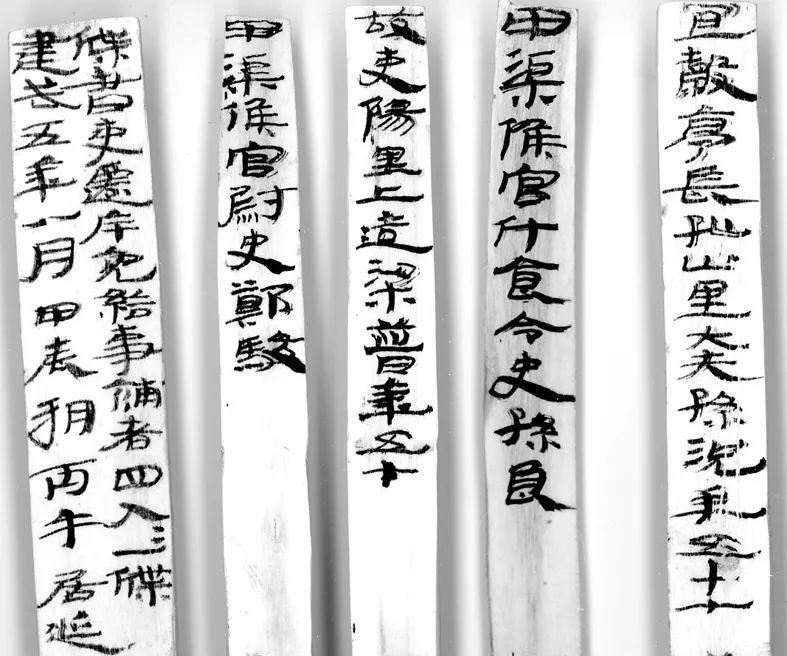 牒書吏遷斥免給事補者四人=一牒
建武五年八月甲辰朔丙午居延
甲渠候官尉史鄭駿
故吏陽里上造梁普年五十
甲渠候官斗食令史孫良
宜穀亭長孤山里大夫孫況年五十七